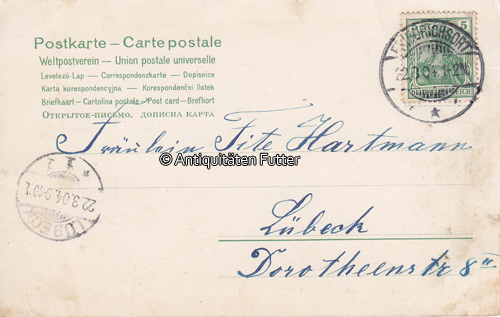 Postkarte – Carte postale
Weltpostverein – Union postale universelle
Levelező-Lap – Correspondenzkarte – Dopisnice
Karta korespondencyjna – Korespondenční listek
Briefkaart – Cartolina postale – Post card – Brefkort
Открытое-письмо. дописна карта
5
FRIEDRICHSORT
22.3.04.1-2N
REICH
Fräulein Tite Hartmann
© Antiquitäten Futter
LÜBECK
22.3.04.9-10
Lübeck
Dorotheenstr 8